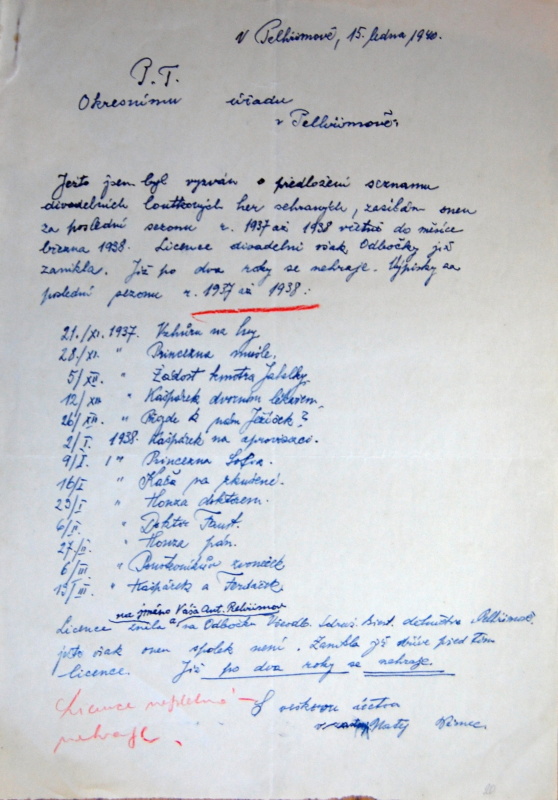 V Pelhřimově, 15. ledna 1940.
P. T.
Okresnímu úřadu
v Pelhřimově.
Jerto jsem byl vyzván o předložení seznamu
divadelních loutkových her sehraných, zasílám onen
za poslední sezonu r. 1937 až 1938 včetně do měsíce
března 1938. Licence divadelní však Odbočky již
zanikla. Již po dva roky se nehraje. Výpisky za
poslední sezonu r. 1937 až 1938:
21./XI. 1937. Vzhůru na hry
28./XI. " Princezna mušle.
5/XII. " Žádost kmotra Jahelky
12/XII " Kašpárek dvorním lékařem.
26/XII. " Přijde k nám Ježíček?
2/I. 1938. Kašpárek na aprovisaci.
9/I " Princezna Sofia.
16/I " Káča na zkušené.
23/I " Honza doktorem.
6/II. " Doktor Faust.
27/II " Honza pán.
6/III " zvoneček
13/III. " Kašpárek a Ferdáček
na jméno Váša Ant. Pelhřimov
Licence zněla a na Odbočku dělnictva Pelhřimově.
jeto však onen spolek není. Zanikla již dříve před tím
licence. Již po dva roky se nehraje.
Licence neplatná
nehraje.
S veškerou úctou